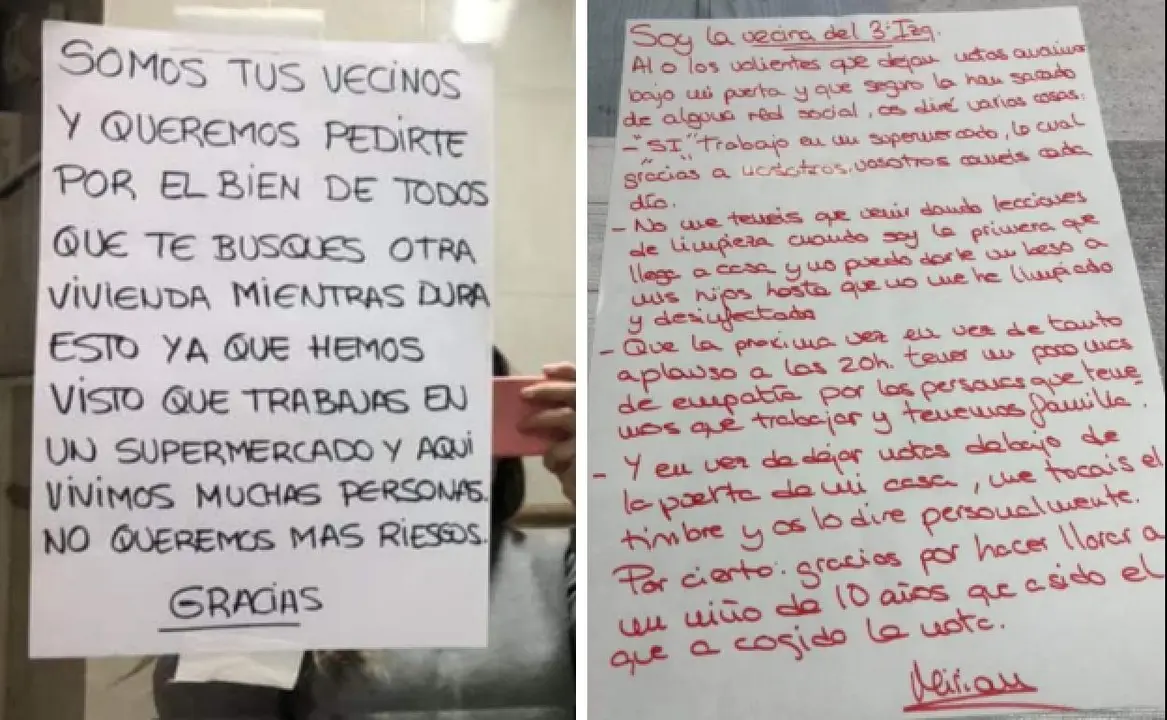 SOMOS TUS VECINOS
Y QUEREMOS PEDIRTE
POR EL BIEN DE TODOS
QUE TE BUSQUES OTRA
VIVIENDA MIENTRAS DURA
ESTO YA QUE HEMOS
VISTO QUE TRABAJAS EN
UN SUPERMERCADO Y AQUI
VIVIMOS MUCHAS PERSONAS.
NO QUEREMOS MAS RIESGOS.
GRACIAS
Soy la vecina del 3º Izq.
Al o los valientes que dejan notas
bajo mi puerta y que seguro la han sacado
de alguna red social, os diré varias cosas:
- "SI" Trabajo en un supermercado, lo cual
gracias a vosotros coméis cada
día.
- No me teneis que venir dando lecciones
de limpieza cuando soy la primera que
llega a casa y no puedo darle un beso a
mis hijos hasta que no me he limpiado
y desinfectado
- Que la proxima vez en vez de tanto
aplauso a las 20h. tener un poco mas
de empatía por las personas que tene
mos que trabajar y tenemos familia.
- Y en vez de dejar notas debajo de
la puerta de mi casa, me tocais el
timbre y os lo dire personalmente.
Por cierto: gracias por hacer llorar a
un niño de 10 años que a sido el
que a cogido la nota.
Mirian